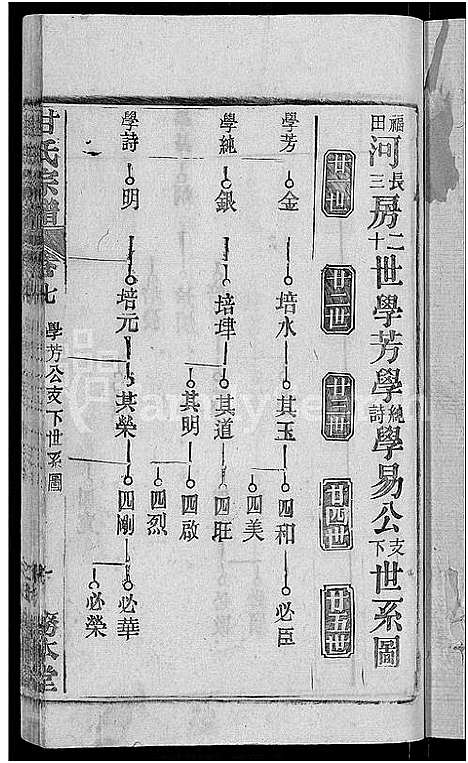 福田河長三房二十世學芳學純學詩學易公支下世系圖
廿一世
廿二世
廿三世
廿四世
廿五世
學芳
金
培水
其玉
四和
必臣
四美
學純
銀
培珒
其道
四旺
其明
四啟
學詩
明
培元
其榮
四剛
必華
必榮
四烈
甘氏宗譜
卷七
學芳公支下世系圖